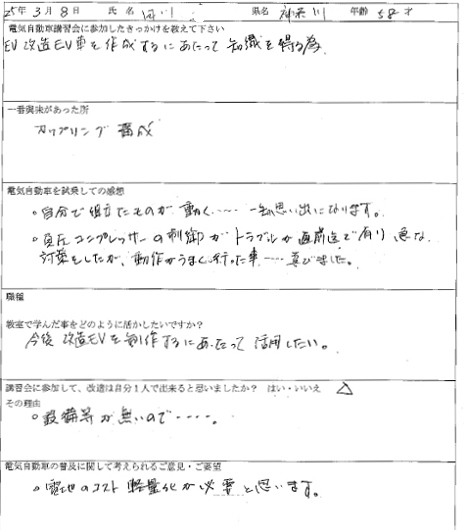 25年 3月 8日 氏 名 河川 県名 神奈川 年齢 58 才
電気自動車講習会に参加したきっかけを教えて下さい
EV 改造EV車を作成するにあたって 知識を得る為
一番興味があった所
カップリング 作成
電気自動車を試乗しての感想
。自分で組立たものが 動く‥‥ 一生の思い出になります。
。真圧コンプレッサーの制御が トラブルが 直前迄で有り 急な
対策をしたが、動作がうまく行った事‥‥喜びました。
職種
教室で学んだ事をどのように活かしたいですか?
今後 改造EVを制作するにあたって 活用したい。
講習会に参加して、改造は自分1人で出来ると思いましたか? はい・いいえ △
その理由
。設備等が無いので‥‥。
電気自動車の普及に関して考えられるご意見・ご要望
。電池のコスト 軽量化が必要と思います。